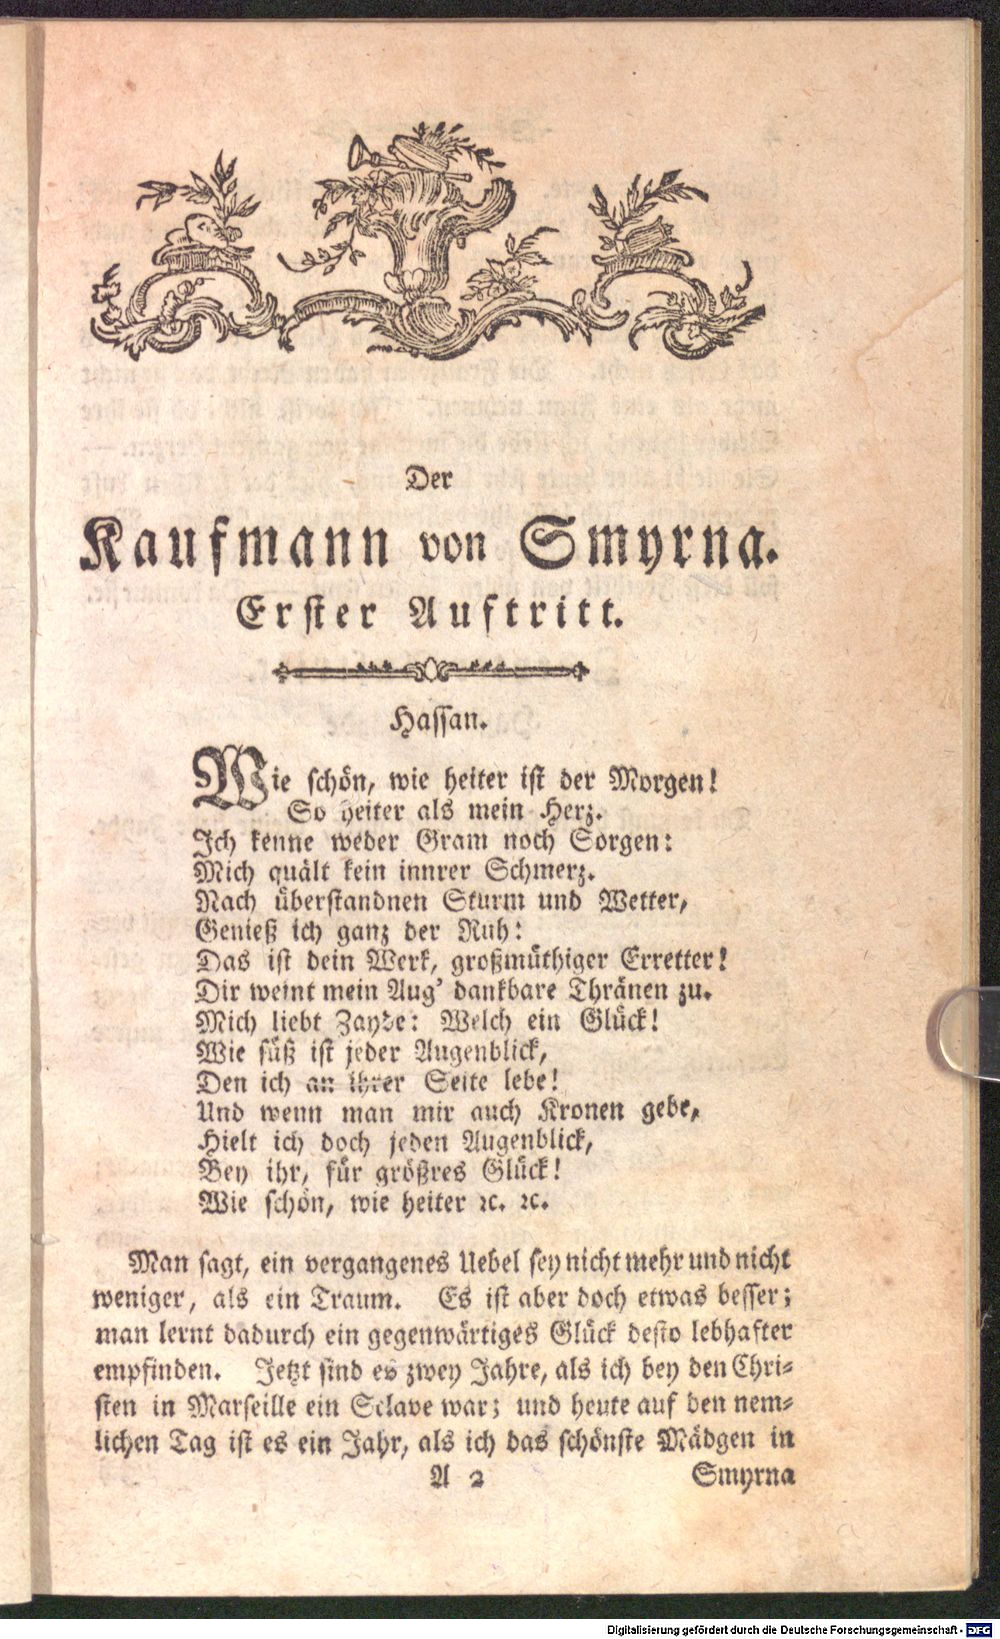 Der
Kaufmann von Smyrna.
Erster Auftritt.
Hassan.
Wie schön, wie heiter ist der Morgen!
So heiter als mein Herz.
Ich kenne weder Gram noch Sorgen:
Mich quält kein innrer Schmerz.
Nach überstandnen Sturm und Wetter,
Genieß ich ganz der Ruh:
Das ist dein Werk, großmüthiger Erretter!
Dir weint mein Aug' dankbare Thränen zu.
Mich liebt Zayde: Welch ein Glück!
Wie süß ist jeder Augenblick,
Den ich an ihrer Seite lebe!
Und wenn man mir auch Kronen gebe,
Hielt ich doch jeden Augenblick,
Bey ihr, für größres Glück!
Wie schön, wie heiter ꝛc. ꝛc.
Man sagt, ein vergangenes Uebel sey nicht mehr und nicht
weniger, als ein Traum. Es ist aber doch etwas besser;
man lernt dadurch ein gegenwärtiges Glück desto lebhafter
empfinden. Jetzt sind es zwey Jahre, als ich bey den Chri-
sten in Marseille ein Sclave war; und heute auf den nem-
lichen Tag ist es ein Jahr, als ich das schönste Mädgen in
A 2 Smyrna
Digitalisierung gefördert durch die Deutsche Forschungsgemeinschaft - DFG